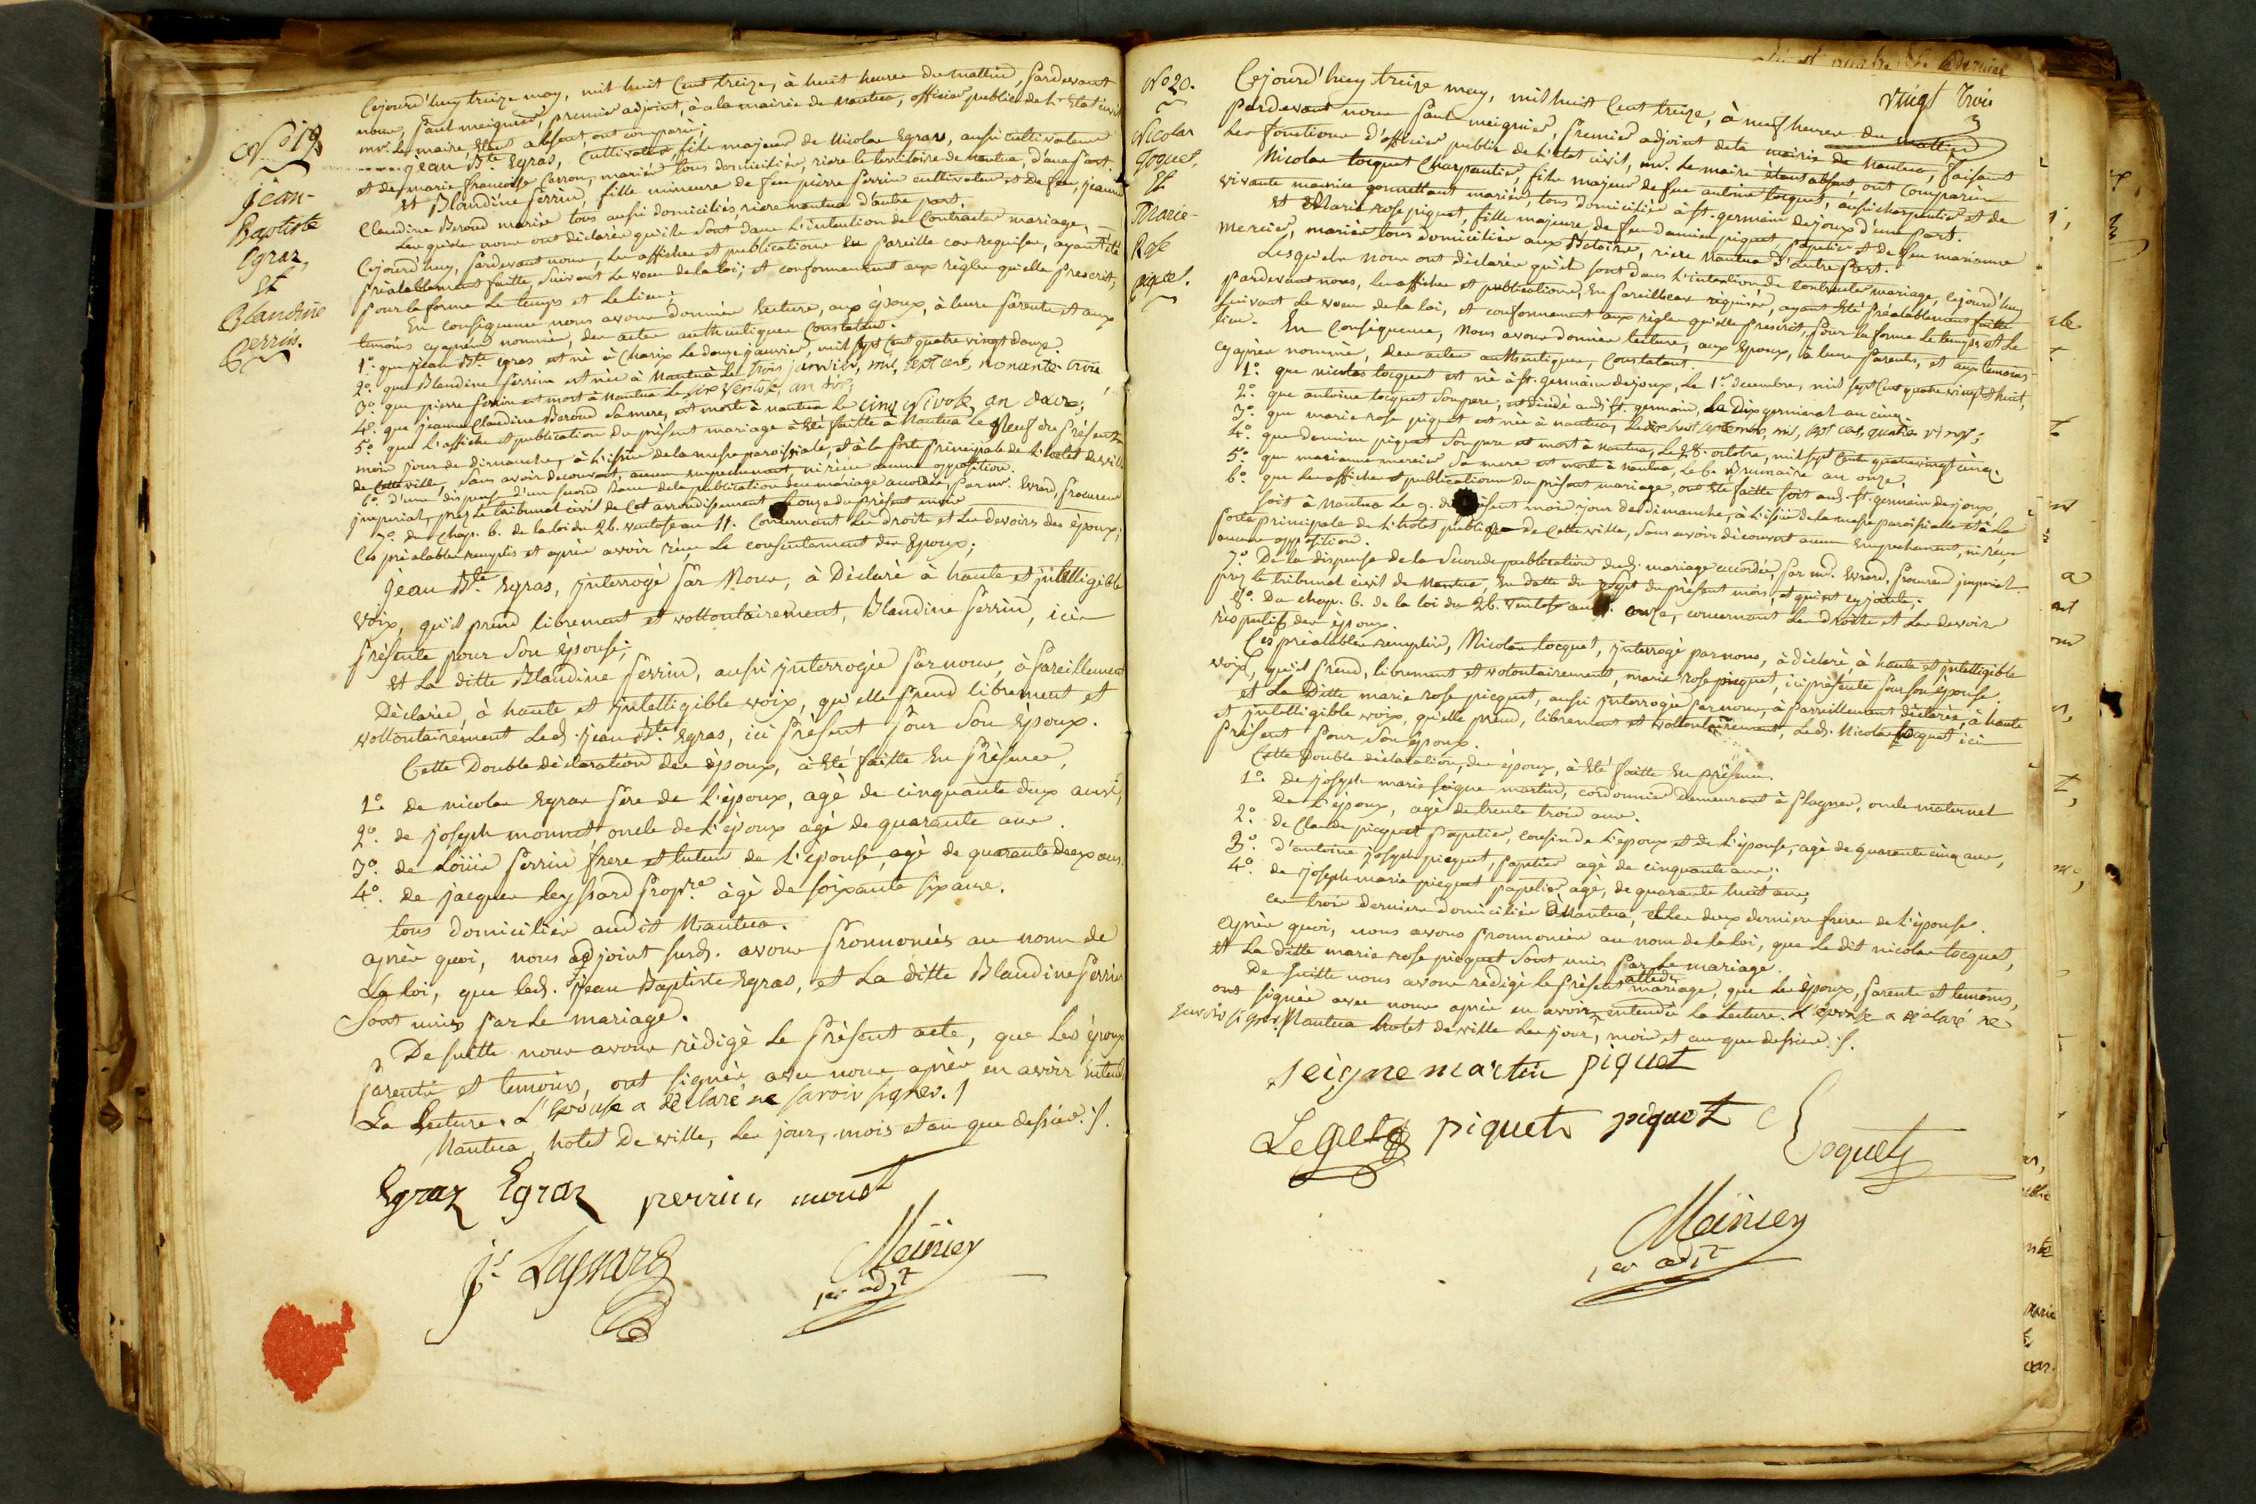 N° 19.
Jean-
Baptiste
Egraz,
Et
Blandine
Perrin.
Cejourd'huy treize may, mil huit Cent treize, à huit heures du mattin, pardevant
nous, paul meignier, premier adjoint, à la mairie de Nantua, officier public de l'Etat civil
mr. Le maire Etant absent, ont comparu;
jean Bte. Egras, Cultivateur, fils majeur de Nicolas Egras, aussi cultivateur
et de marie francoise Carron, mariés tous domiciliés, riere le territoire de Nantua, d'une part
Et Blandine perrin, fille mineure de feu pierre perrin cultivateur et de feu jeanne
Claudine Beroud mariés tous aussi domiciliés, riere nantua d'autre part.
Lesquels nous ont déclarés qu'ils sont dans L'intention de Contracter mariage,
Cejourd'huy, pardevant nous, Les affiches et publications En pareille cas requises, ayant été
préalablement faitte, Suivant Le voeu de la loi; et conformement aux règles qu'elle prescrit,
pour la forme Le temps et Le lieu;
En conséquence nous avons donnés lecture, aux époux, à leurs parents et aux
temoins cyaprès nommés, des actes authentiques Constatant.
1° que jean Bte. Egras est né à Charix Le douze janvier, mil sept Cent quatre vingt douze.
2° que Blandine perrin est née à Nantua Le trois janvier, mil, sept cent, nonante trois,
3° que pierre perrin est mort à Nantua Le six ventose, an dix;
4° que jeanne Claudine Beroud sa mere, est morte à nantua le cinq Nivose, an douze;
5° que L'affiche et publication du présent mariage à Eté faitte à Nantua Le Neuf du présent
mois jour de dimanche, à L'issue de la messe paroissiale, et à la porte principale de L'hotel de ville
de Cette ville, Sans avoir découvert, aucun empechement, ni reçu aucune opposition.
6° d'une dispense d'un second bans de la publication dece mariage accordée, par mr. Evrard, procureur
jmperial, prez Le tribunal civil de Cet arrondissement Le onze du present mois
7° du Chap. 6. de la loi du 26. ventose an 11. Concernant Les droits et Les devoirs des époux;
Ces préalables remplis et après avoir reçu Le consentement des Epoux;
Jean Bte. Egras, jnterrogé par Nous, à Déclaré à haute et jntelligible
voix, qu'il prend librement et vollontairement, Blandine perrin, ici
présente pour Son épouse;
Et La ditte Blandine perrin, aussi jnterrogée par nous, à pareillement
Déclarée, à haute et jntelligible voix, qu'elle prend librement et
vollontairement Led. jean Bte Egras, ici présent pour Son époux.
Cette Double déclaration des époux, à Eté faitte En présence,
1° de nicolas Egras père de L'époux, agé de cinquante deux ans;
2° de joseph monnet, oncle de L'époux agé de quarante ans.
3° de Loüis perrin frere et tuteur de L'épouse, agé de quarante deux ans
4° de jacques Leyssard propre. agé de soixante six ans.
tous domiciliés audit Nantua.
après quoi, nous adjoint susd. avons prononcés au nom de
La loi, que led. jean Baptiste Egras, et La ditte Blandine perrin
Sont unis par Le mariage.
De suitte nous avons rédigé Le présent acte, que Les époux
parents et temoins, ont signés avec nous après en avoir entendu
La lecture. L'épouse a déclaré ne savoir signer./
Nantua, hotel De ville, Les jour, mois et an que dessus./.
Egraz Egraz perrin monet
Js Leyssard
Meinier
1er adjt
vingt trois
N° 20.
Nicolas
Goquet,
Et
Marie-
Rose
piquet.
Cejourd'huy treize may, mil huit Cent treize, à neuf heures du mattin
pardevant nous paul meignier, premier adjoint de la mairie de Nantua, faisant
Les fonctions d'officier public de L'état civil, mr. Le maire étant absent, ont comparu
Nicolas tocquet Charpentier, fils majeur de feu antoine tocquet, aussi charpentier et de
vivante maurice gonnettant mariés, tous domiciliés à St. germain de joux d'une part.
Et Marie rose piquet, fille majeure de feu damien piquet, papetier et de feu marianne
mercier, mariés tous domiciliés aux Battoirs, riere Nantua d'autre part.
Lesquels nous ont déclarés qu'ils sont dans L'intention, de Contracter mariage, Cejourd'huy
pardevant nous, Les affiches et publications, En pareil cas requises, ayant Eté préalablement faitte
Suivant Le voeu de la loi, et conformement aux règle qu'elle prescrit, pour la forme Le temps et Le
lieu. En Conséquence, Nous avons donnés lecture, aux Epoux, à leurs parents, et aux temoins
cyaprès nommés, des actes authentiques, Constatant.
1° que nicolas tocquet est né à St. germain dejoux, Le 1er. decembre, mil sept Cent quatre vingt huit,
2° que antoine tocquet Son pere, est décédé aud. St. germain, Le Dix germinal an cinq.
3° que marie rose piquet est née à nantua, Le dix huit septembre, mil, sept cent, quatre vingt;
4° que damien piquet Son pere est mort à nantua, Le 28. octobre, mil sept Cent quatre vingt cinq.
5° que marianne mercier Sa mere est morte à nantua, Le 6. Brumaire an onze,
6° que Les affiches et publications du présent mariage, ont Eté faitte soit aud. St. germain dejoux,
soit à Nantua Le 9. du présent mois jour de dimanche, à L'issue de la messe paroissiale et à La
porte principale de L'hotel public de Cette ville, Sans avoir découvert aucun Empechement, ni reçu
aucune opposition.
7° De la dispense de la Seconde publication dud. mariage accordée, par mr. Evrard, procureur jmperial
prez le tribunal civil de Nantua, En datte du sept du présent mois, et qui est cy jointe;
8° Du chap. 6. de la loi du 26. ventose an onze, concernant Les droits et Les devoirs
respectifs des époux.
Ces préalables remplis, Nicolas tocquet, jnterrogé par nous, à déclaré, à haute et jntelligible
voix, qu'il prend, librement et volontairement, marie rose piquet, ici présente pour son épouse.
et La Ditte marie rose picquet, aussi jnterrogée par nous, à pareillement déclarée, à haute
et jntelligible voix, qu'elle prend, librement et vollontairement, Led. Nicolas tocquet ici
présent pour Son époux.
Cette Double déclaration, des époux, à Eté faitte En présence.
1° de joseph marie seigne martin, cordonnier demeurant à plagnes, oncle maternel
De L'époux, agé de trente trois ans.
2° de Claude picquet papetier, cousin de L'époux et de L'épouse, agé de quarante cinq ans,
3° d'antoine joseph picquet, papetier agé de cinquante ans;
4° de joseph marie picquet papetier agé, de quarante huit ans;
ces trois derniers domiciliés à Nantua, et Les deux derniers freres de L'épouse.
après quoi, nous avons prononcés au nom de la loi, que Le dit nicolas tocquet,
et La ditte marie rose picquet Sont unis par Le mariage.
De suitte nous avons rédigé le présent acte de mariage, que Les époux, parents et temoins,
ont signés avec nous après en avoir entendu La Lecture. L'épouse a déclaré ne
savoir signer. Nantua hotel de ville Les jour, mois et an que dessus./.
seigne martin piquet
piquet piquet Toquet
Meinier
1er adjt